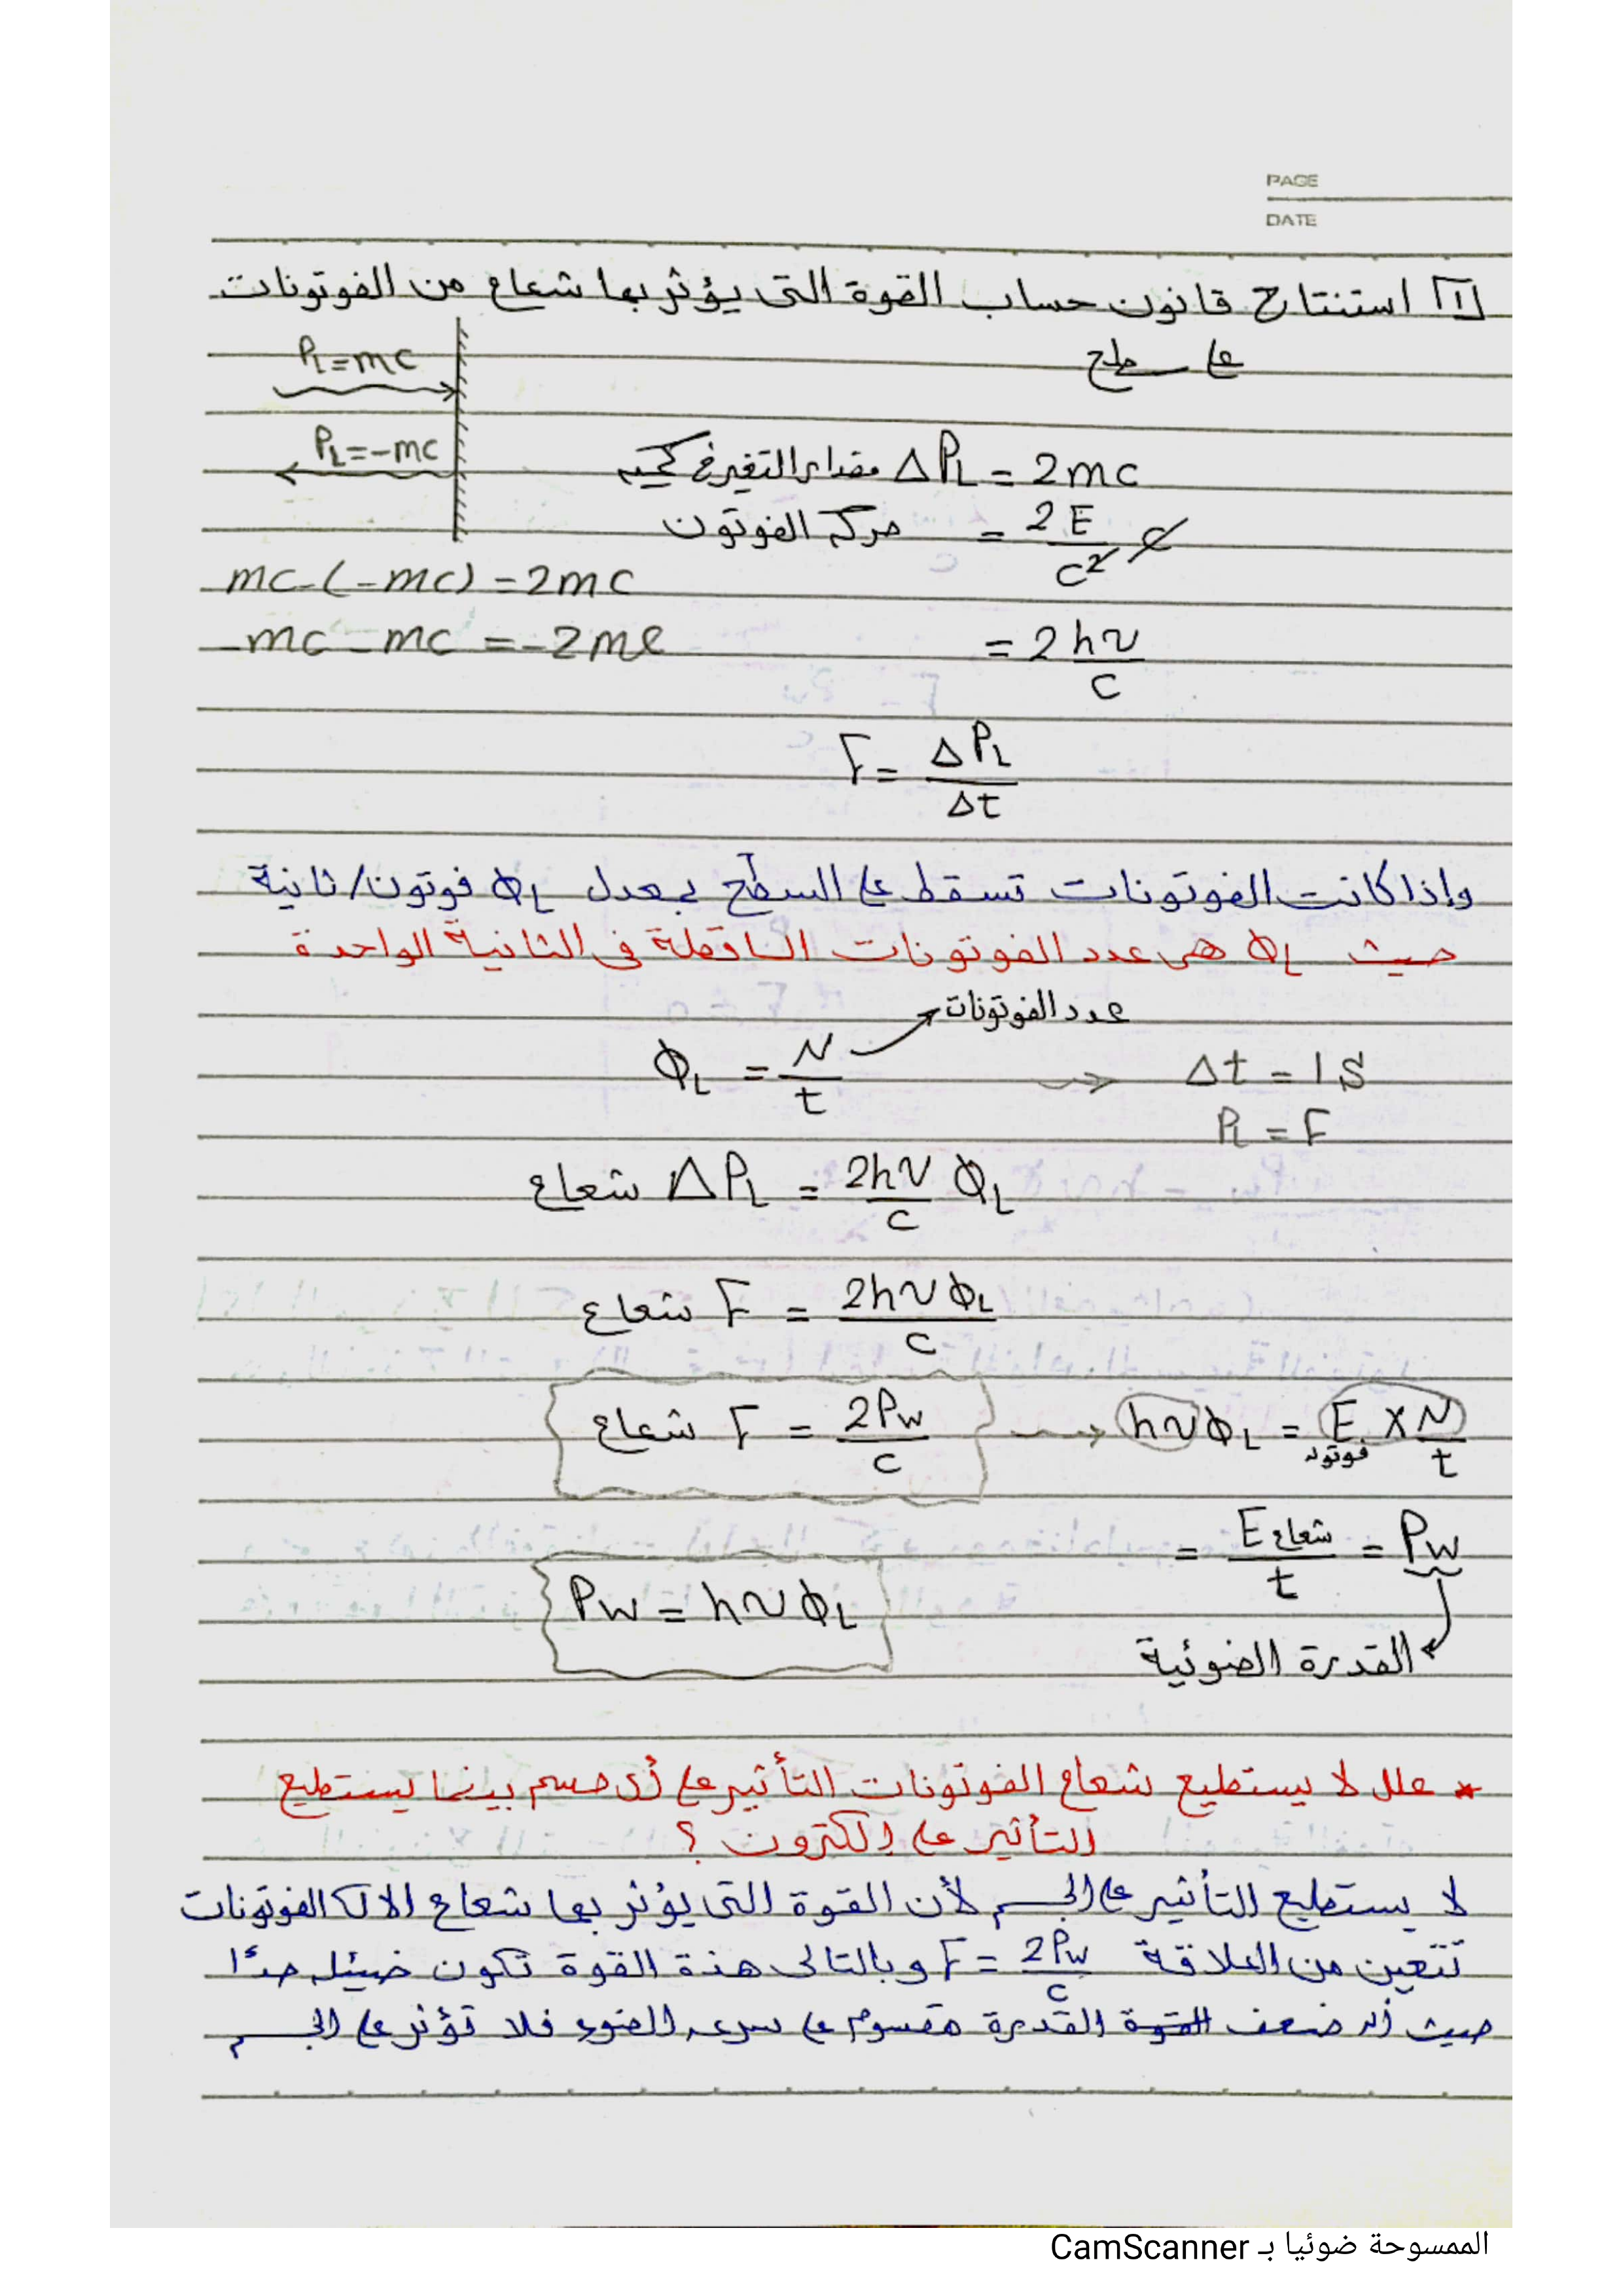 PAGE
DATE
1 استنتاج قانون حساب القوة التى يؤثر بها شعاع من الفوتونات
على سطح
PL = mc
PL = -mc
مقدار التغير فى كمية ΔPL = 2mc
حركة الفوتون = 2E/c² c
mc - (-mc) = 2mc
-mc - mc = -2mc
= 2hν/c
F = ΔPL/Δt
وإذا كانت الفوتونات تسقط على السطح بمعدل ΦL فوتون/ثانية
حيث ΦL هى عدد الفوتونات الساقطة فى الثانية الواحدة
عدد الفوتونات
ΦL = N/t → Δt = 1S
PL = F
شعاع ΔPL = 2hν/c ΦL
شعاع F = 2hνΦL/c
شعاع F = 2Pw/c → hνΦL = E فوتون × N/t
= E شعاع/t = Pw
Pw = hνΦL
القدرة الضوئية
* علل لا يستطيع شعاع الفوتونات التأثير على أى جسم بينما يستطيع
التأثير على إلكترون ؟
لا يستطيع التأثير على الجسم لأن القوة التى يؤثر بها شعاع الفوتونات
تتعين من العلاقة F = 2Pw/c وبالتالى هذة القوة تكون ضئيله جدًا
حيث أن ضعف القوة القدرة مقسوم على سرعه الضوء فلا تؤثر على الجسم
الممسوحة ضوئيا بـ CamScanner